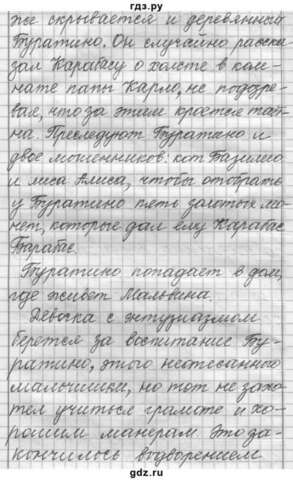 гдз.ру
же скрывается и деревянный
Буратино. Он случайно расска-
зал Карабасу о холсте в ком-
нате папы Карло, не подозре-
вая, что за этим кроется тай-
на. Преследуют Буратино и
двое мошенников: кот Базилио
и лиса Алиса, чтобы отобрать
у Буратино пять золотых мо-
нет, которые дал ему Карабас
Барабас.
Буратино попадает в дом,
где живет Мальвина.
Девочка с энтузиазмом
берется за воспитание Бу-
ратино, этого неотесанного
мальчишки, но тот не захо-
тел учиться грамоте и хо-
рошим манерам. Это за-
кончилось водворением
gdz.ru